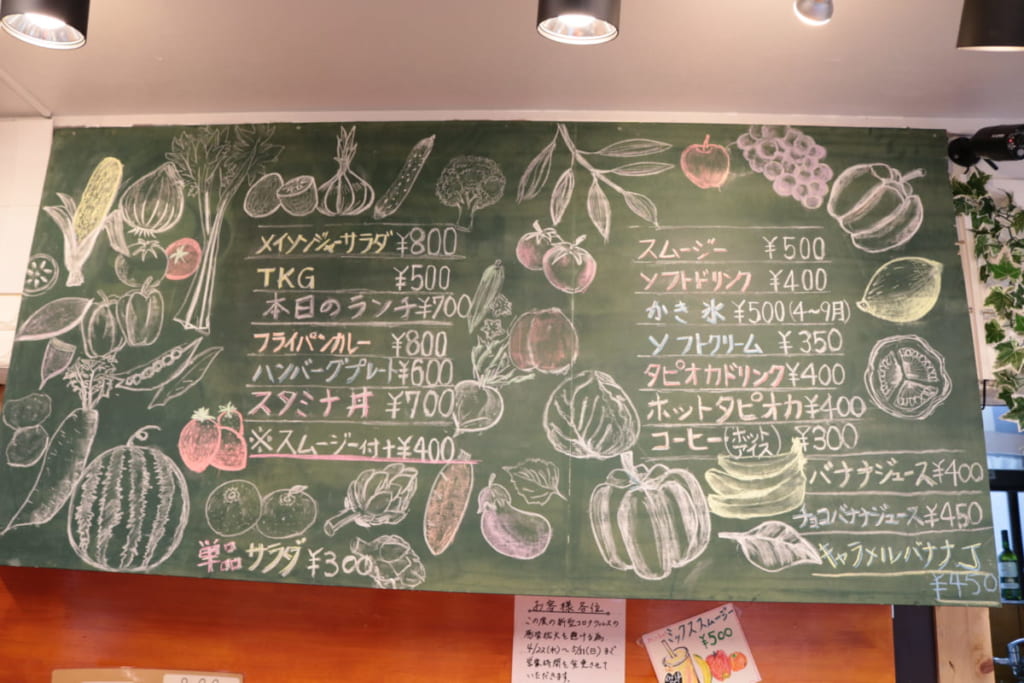 メイソンジャーサラダ ¥800
TKG ¥500
本日のランチ ¥700
フライパンカレー ¥800
ハンバーグプレート ¥600
スタミナ丼 ¥700
※スムージー付き ¥400
単品サラダ ¥300
スムージー ¥500
ソフトドリンク ¥400
かき氷 ¥500(4〜9月)
ソフトクリーム ¥350
タピオカドリンク ¥400
ホットタピオカ ¥400
コーヒー(ホット アイス) ¥300
バナナジュース ¥400
チョコバナナジュース ¥450
キャラメルバナナJ
¥450
お客様各位
この度の新型コロナウィルスの
感染拡大を避ける為
4/22(水)〜5/31(日)まで
営業時間を変更させて
いただきます。
ミックススムージー
¥500